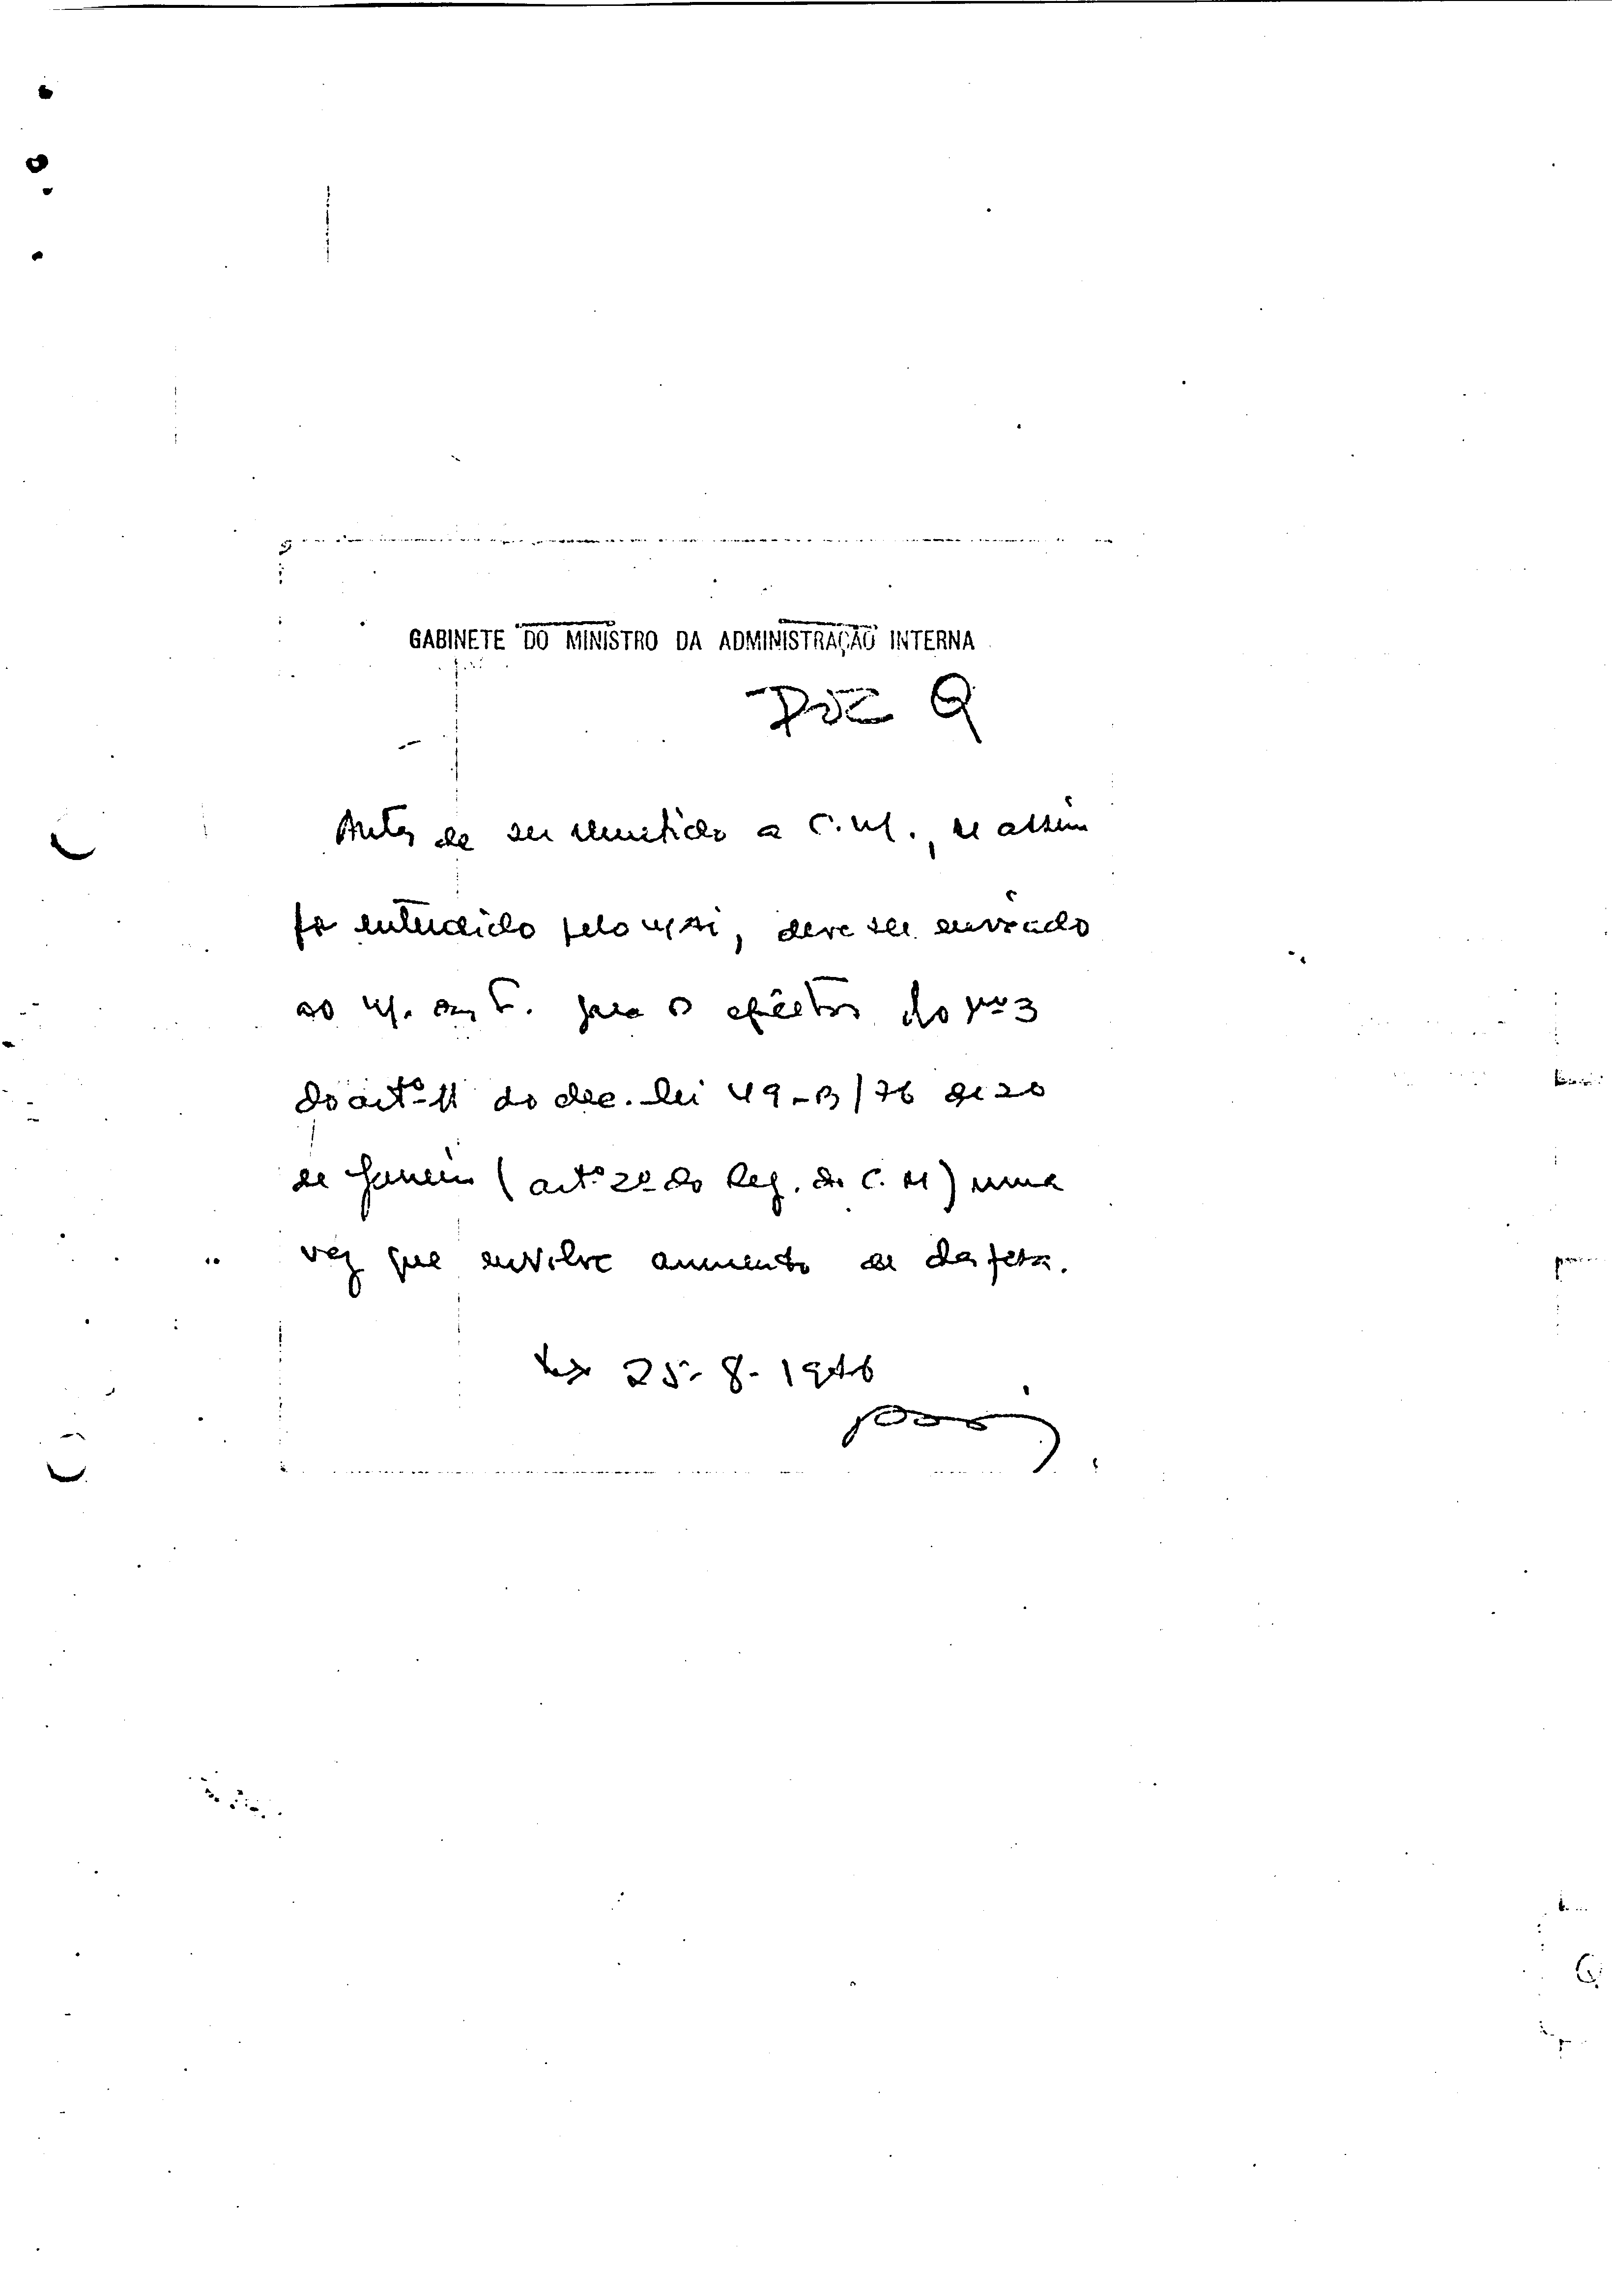 GABINETE DO MINISTRO DA ADMINISTRAÇÃO INTERNA
DOC Q
Antes de ser remetido a C.M., se assim
for entendido pelo MAI, deve ser enviado
ao M. das F. para os efeitos do nº 3
do artº 11 do dec. lei 49-B/76 de 20
de Janeiro (artº 2º do Reg. do C. M) uma
vez que envolve aumento de despesa.
25-8-1976